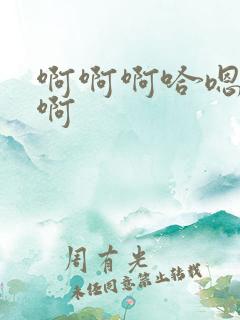 啊啊啊哈嗯
啊
周有光
未经同意禁止转载